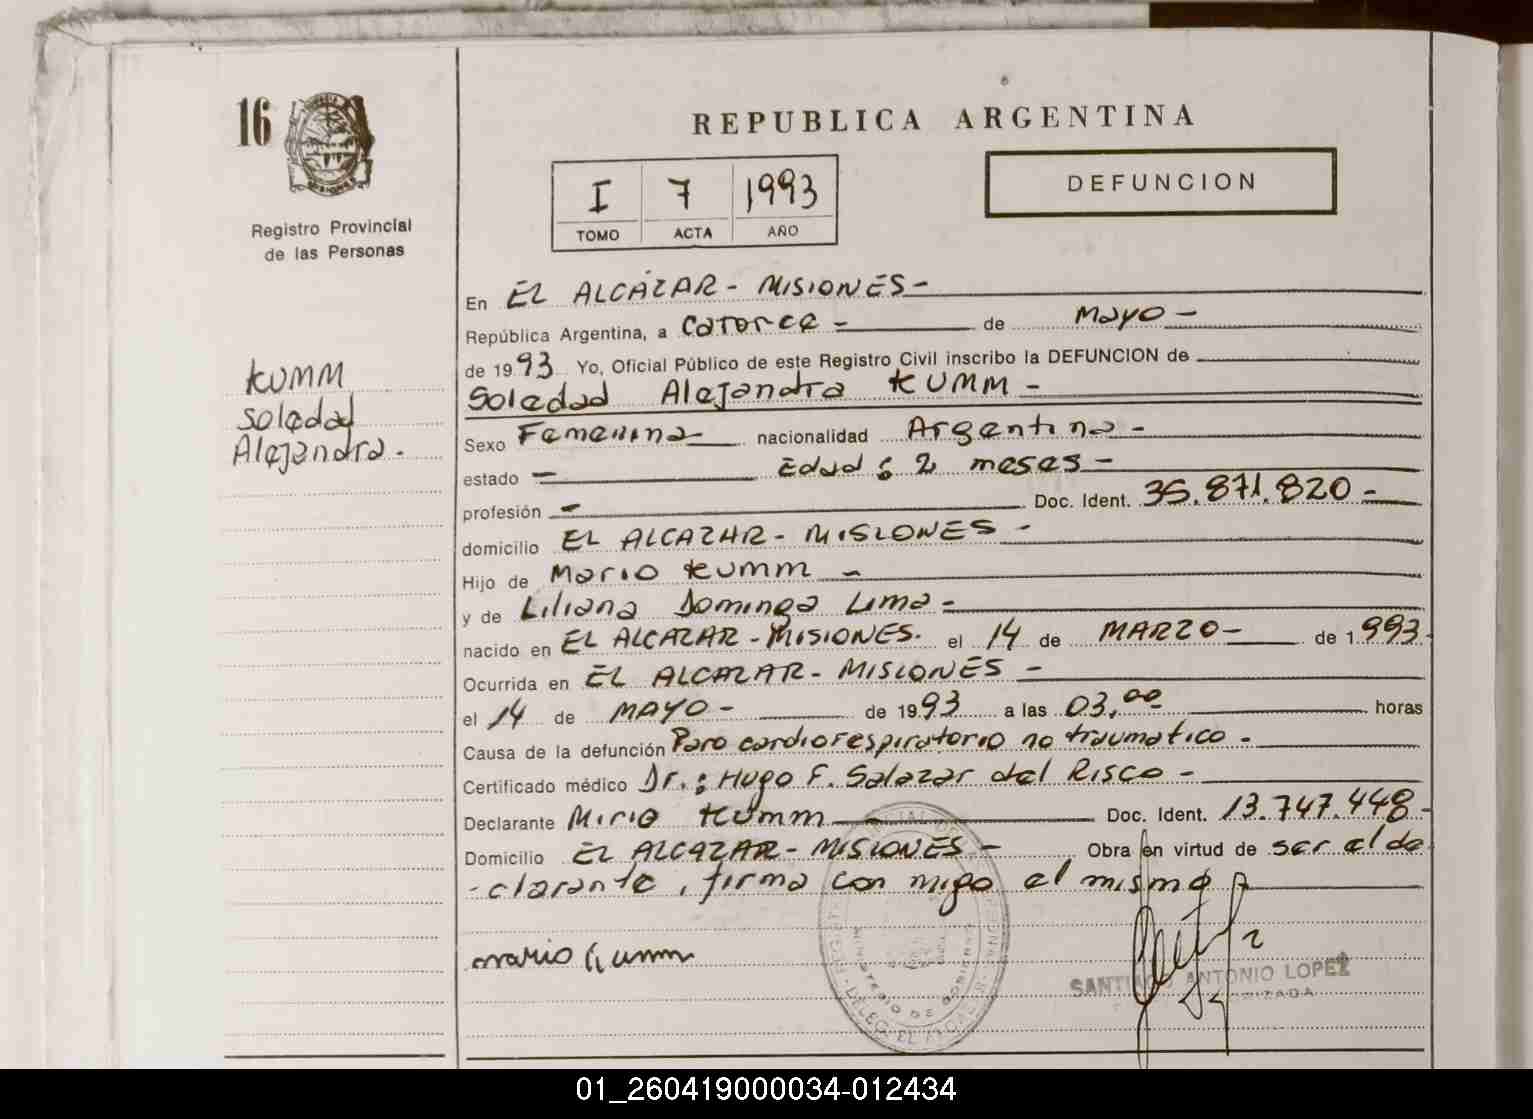 16
Registro Provincial
de las Personas
KUMM
Soledad
Alejandra.
REPUBLICA ARGENTINA
I 7 1993
TOMO ACTA AÑO
DEFUNCION
En EL ALCÁZAR - MISIONES -
República Argentina, a Catorce - de Mayo -
de 1993 Yo, Oficial Público de este Registro Civil inscribo la DEFUNCION de
Soledad Alejandra KUMM -
Sexo Femenina - nacionalidad Argentina -
estado - Edad : 2 meses -
profesión - Doc. Ident. 35.871.820 -
domicilio EL ALCAZAR - MISIONES -
Hijo de Mario Kumm -
y de Liliana Dominga Lima -
nacido en EL ALCAZAR - MISIONES. el 14 de MARZO - de 1.993.
Ocurrida en EL ALCAZAR - MISIONES -
el 14 de MAYO - de 1993 a las 03,00 horas
Causa de la defunción Paro cardiorespiratorio no traumatico -
Certificado médico Dr.: Hugo F. Salazar del Risco -
Declarante Mirio Kumm - Doc. Ident. 13.747.448 -
Domicilio EL ALCAZAR - MISIONES - Obra en virtud de ser el de
-clarante, firma con migo el mismo
mario Kumm
SANTIAGO ANTONIO LOPEZ
MINISTERIO DE GOBIERNO
DELEG. EL ALCAZAR
01_260419000034-012434